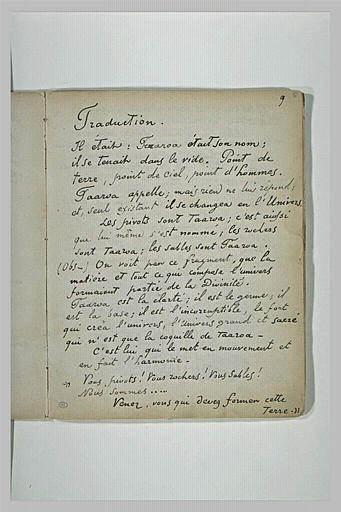 9
Traduction.
Il était : Taaroa était son nom;
il se tenait dans le vide. Point de
terre, point de ciel, point d'hommes.
Taaroa appelle; mais rien ne lui répond;
et, seul existant il se changea en l'Univers.
Les pivots sont Taaroa; c'est ainsi
que lui même s'est nommé; les rochers
sont Taaroa; les sables sont Taaroa.
(Obs—) On voit par ce fragment, que la
matière et tout ce qui compose l'univers
formaient partie de la Divinité.
Taaroa est la clarté; il est le germe; il
est la base; il est l'incorruptible, le fort
qui créa l'univers, l'univers grand et sacré
qui n'est que la coquille de Taaroa—
C'est lui qui le met en mouvement et
en fait l'harmonie.
Vous, pivots! Vous rochers! Vous sables!
Nous sommes.....
Venez, vous qui devez former cette
Terre—"